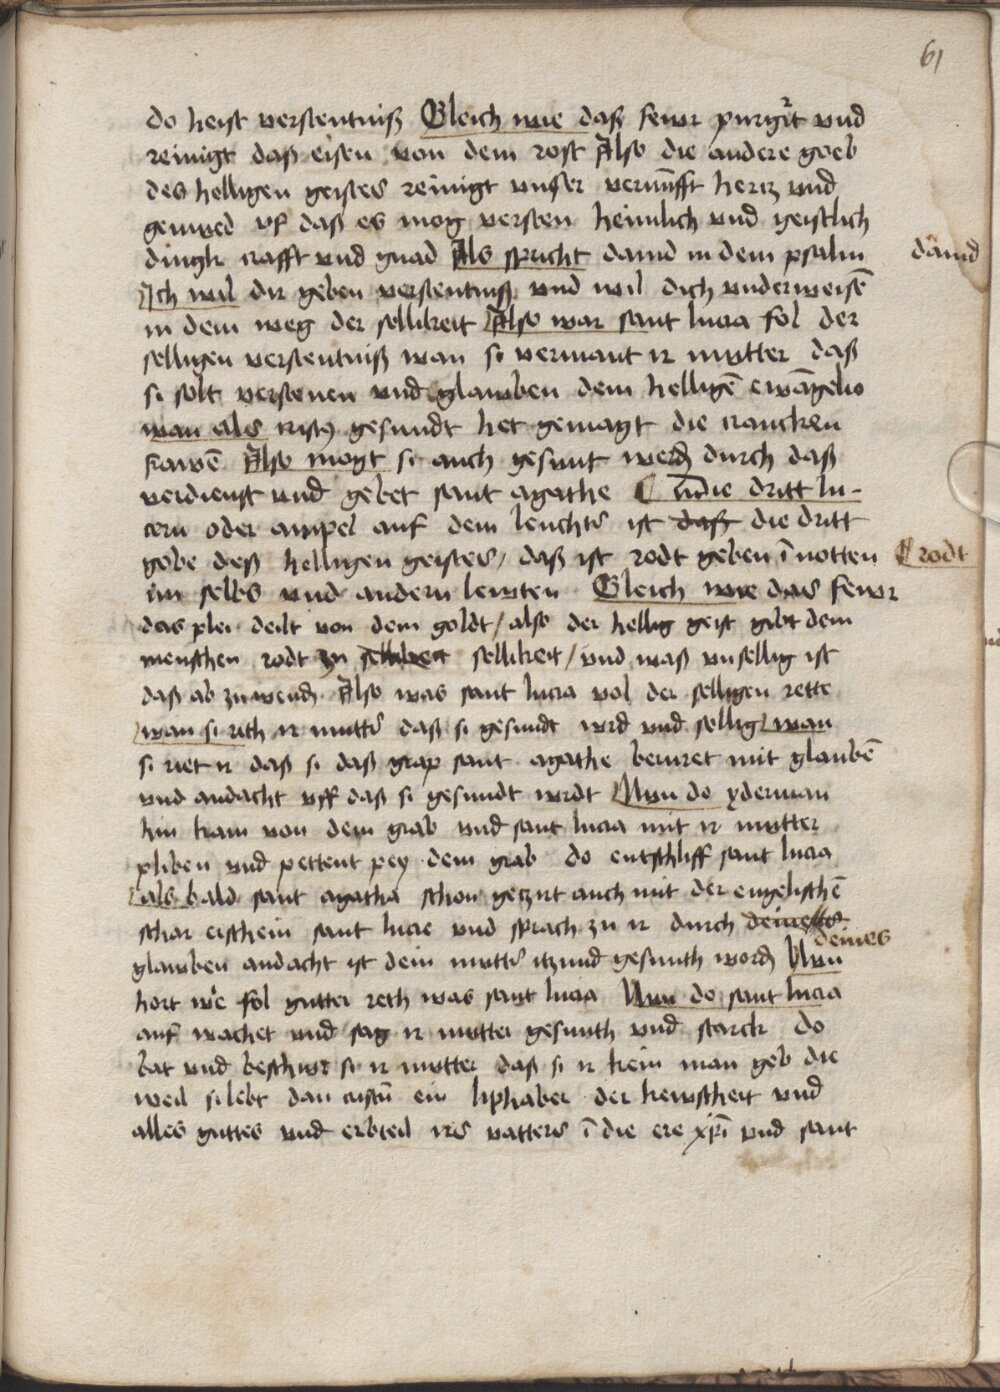 61
do heist verstentniß Gleich wie daß fewr purgirt vnd
reinigt daß eisen von dem rost Also die andere goeb
des helligen geistes reinigt vnser vernūfft hertz vnd
gemued vf daß es mog versten heimlich vnd geistlich
dingk crafft vnd gnad Als spricht dauid in dem psalm
dauid
Ich wil dir geben verstentniß vnd wil dich vnderweisē
in dem weg der sellikeit Also war sant lucia fol der
selligen verstentniß wan si vermant ir mutter daß
si solt verstenen vnd glawben dem helligē ewāgelio
wan als cristꝰ gesundt het gemagt die crancken
frawē Also mogt si auch gesunt werdē durch daß
verdienst vnd gebet sant agathe die dritt lu-
cern oder ampel auf dem leuchter ist daß die dritt
gobe deß helligen geistes / daß ist rodt geben ī notten
rodt
im selbs vnd andern lewten Gleich wie das fewr
das plei deilt von dem goldt / also der hellig geist gibt dem
menschen rodt zu sellikeit sellikeit / vnd waß vnsellig ist
daß ab zu wendē Also was sant lucia vol der selligen rette
wan si rith ir mutter daß si gesundt wrd vnd sellig wan
si riet ir daß si daß grap sant agathe beruret mit glaubē
vnd andacht vff daß si gesundt wrdt Nun do yderman
hin kam von dem grab vnd sant lucia mit ir mutter
pliben vnd pettent pey dem grab do entschliff sant lucia
als bald sant agatha schon getzirt auch mit der engelischē
schar erschein sant lucie vnd sprach zu ir durch deines
deines
glawben andacht ist dein mutter itzund gesunth wordē Nun
hort wie fol gutter reth was sant lucia Nun do sant lucia
auf wachet vnd sag ir mutter gesunth vnd starck do
bat vnd beschwr si ir mutter daß si ir kein man geb die
weil si lebt dan cristū ein liphaber der kewscheit vnd
alles guttes vnd erbteil irs vatters ī die ere xp̄i vnd sant